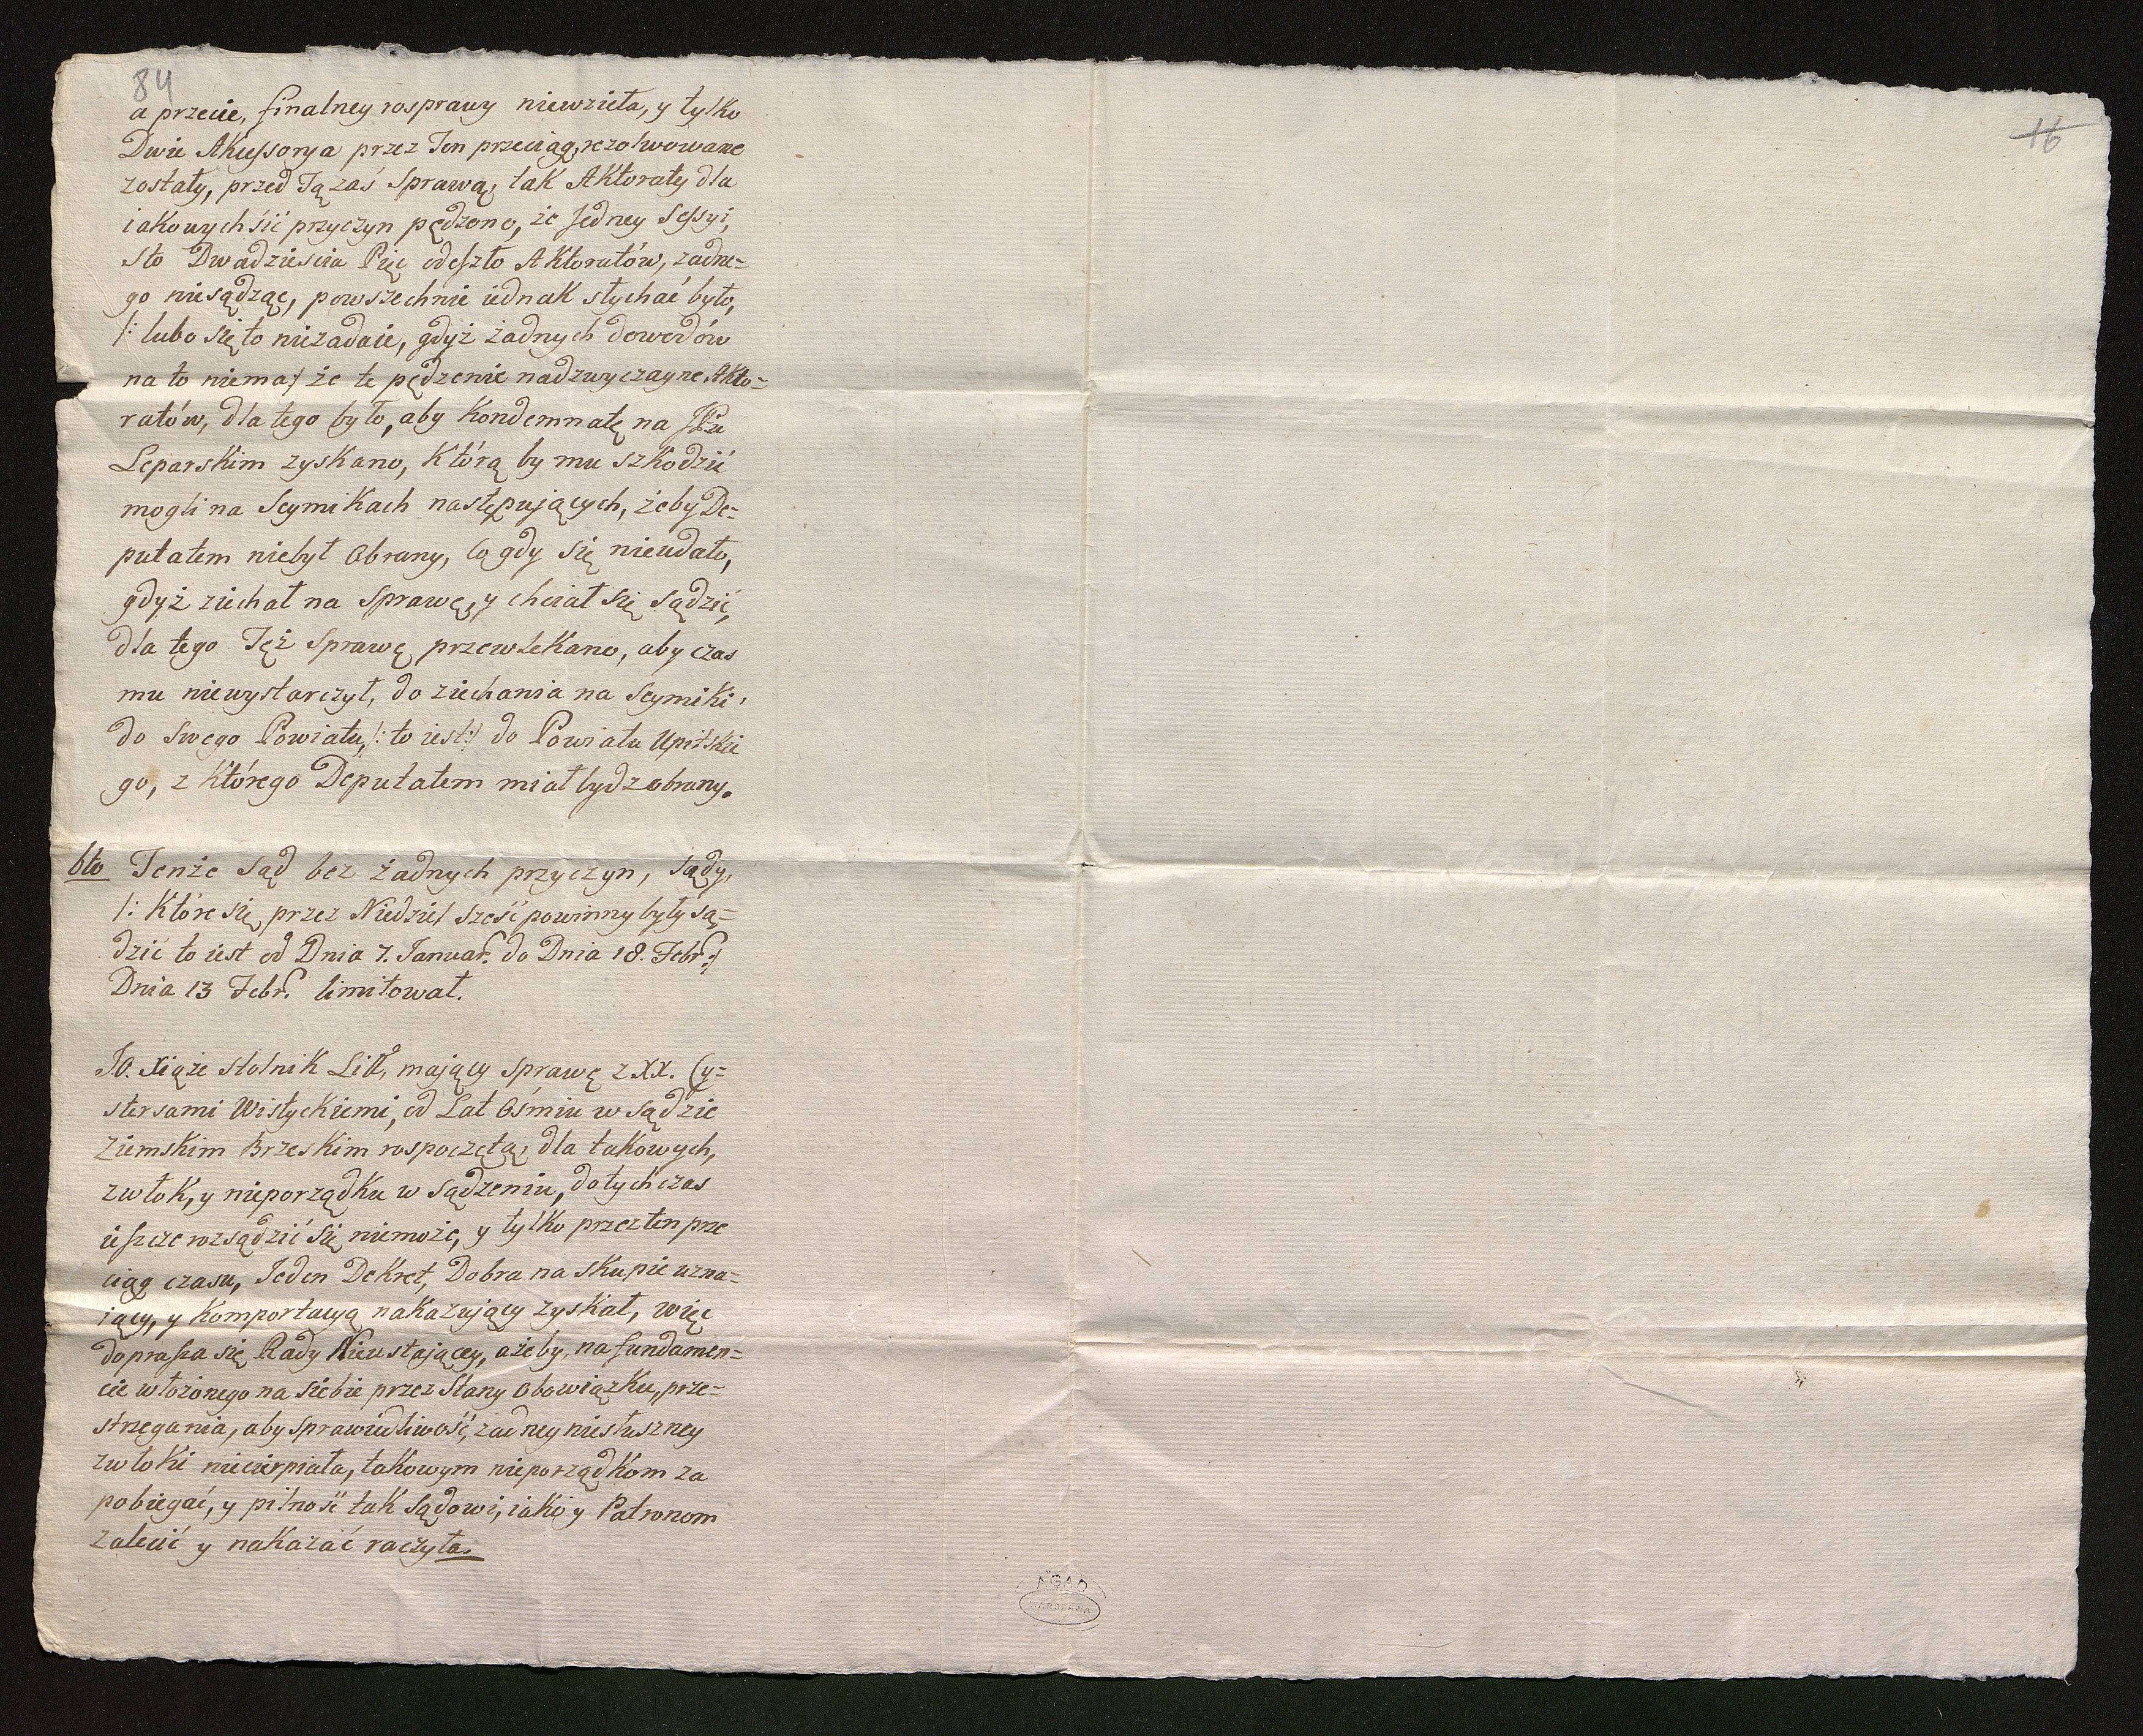 84
16
a przecie, finalney rosprawy niewzieła, y tylko
Dwie Akcessorya przez Ten przeciąg, rezolwowane
zostały, przed Tą zaś Sprawą, tak Aktoraty dla
iakowychści przyczyn pędzono, że Jedney Sessyi,
Sto Dwadziescia Pięc odeszło Aktoratów, zadne=
go niesądząc, powszechnie iednak słychać było,
/: lubo się to niezadaie, gdyż żadnych dowodów
na to niema:/ że te pędzenie nadzwyczayne Akto=
ratów, dla tego było, aby Kondemnatę na JPu
Leparskim zyskano, Którą by mu szkodzić
mogli na Seymikach następujących, żeby De=
putatem niebył Obrany, co gdy się nieudało,
gdyż ziechał na Sprawę, y chciał się Sądzić,
dla tego Też Sprawę przewlekano, aby czas
mu niewystarczył, do ziechania na Seymiki,
do Swego Powiatu, /: to iest :/ do Powiatu Upitskie
go, z Którego Deputatem miał bydz obrany.
6to Tenże Sąd bez żadnych przyczyn, Sądy,
/: Które się przez Niedziel sześć powinny były są=
dzić to iest od Dnia 7. Januar. do Dnia 18. Febr. :/
Dnia 13 Febr. limitował.
JO. Xiąże Stolnik Litt, mający Sprawę z XX. Cy=
stersami Wistyckiemi, od Lat Ośmiu w Sądzie
Ziemskim Brzeskim rospoczętą, dla takowych,
zwłok, y nieporządku w Sądzeniu, dotychczas
ieszcze rozsądzić się niemoże, y tylko przez ten prze
ciąg czasu, Jeden Dekret, Dobra na skupie uzna=
iący, y Komportacyą nakazujący zyskał, więc
doprasza się Rady Nieustającey, ażeby, na fundamen=
cie włożonego na siebie przez Stany Obowiązku, prze=
strzegania, aby Sprawiedliwość, zadney niesłuszney
zwłoki niecierpiała, takowym nieporządkom za
pobiegać, y pilność tak Sądowi, iako y Patronom
zalecić y nakazać raczyła.
AGAD
WARSZAWA